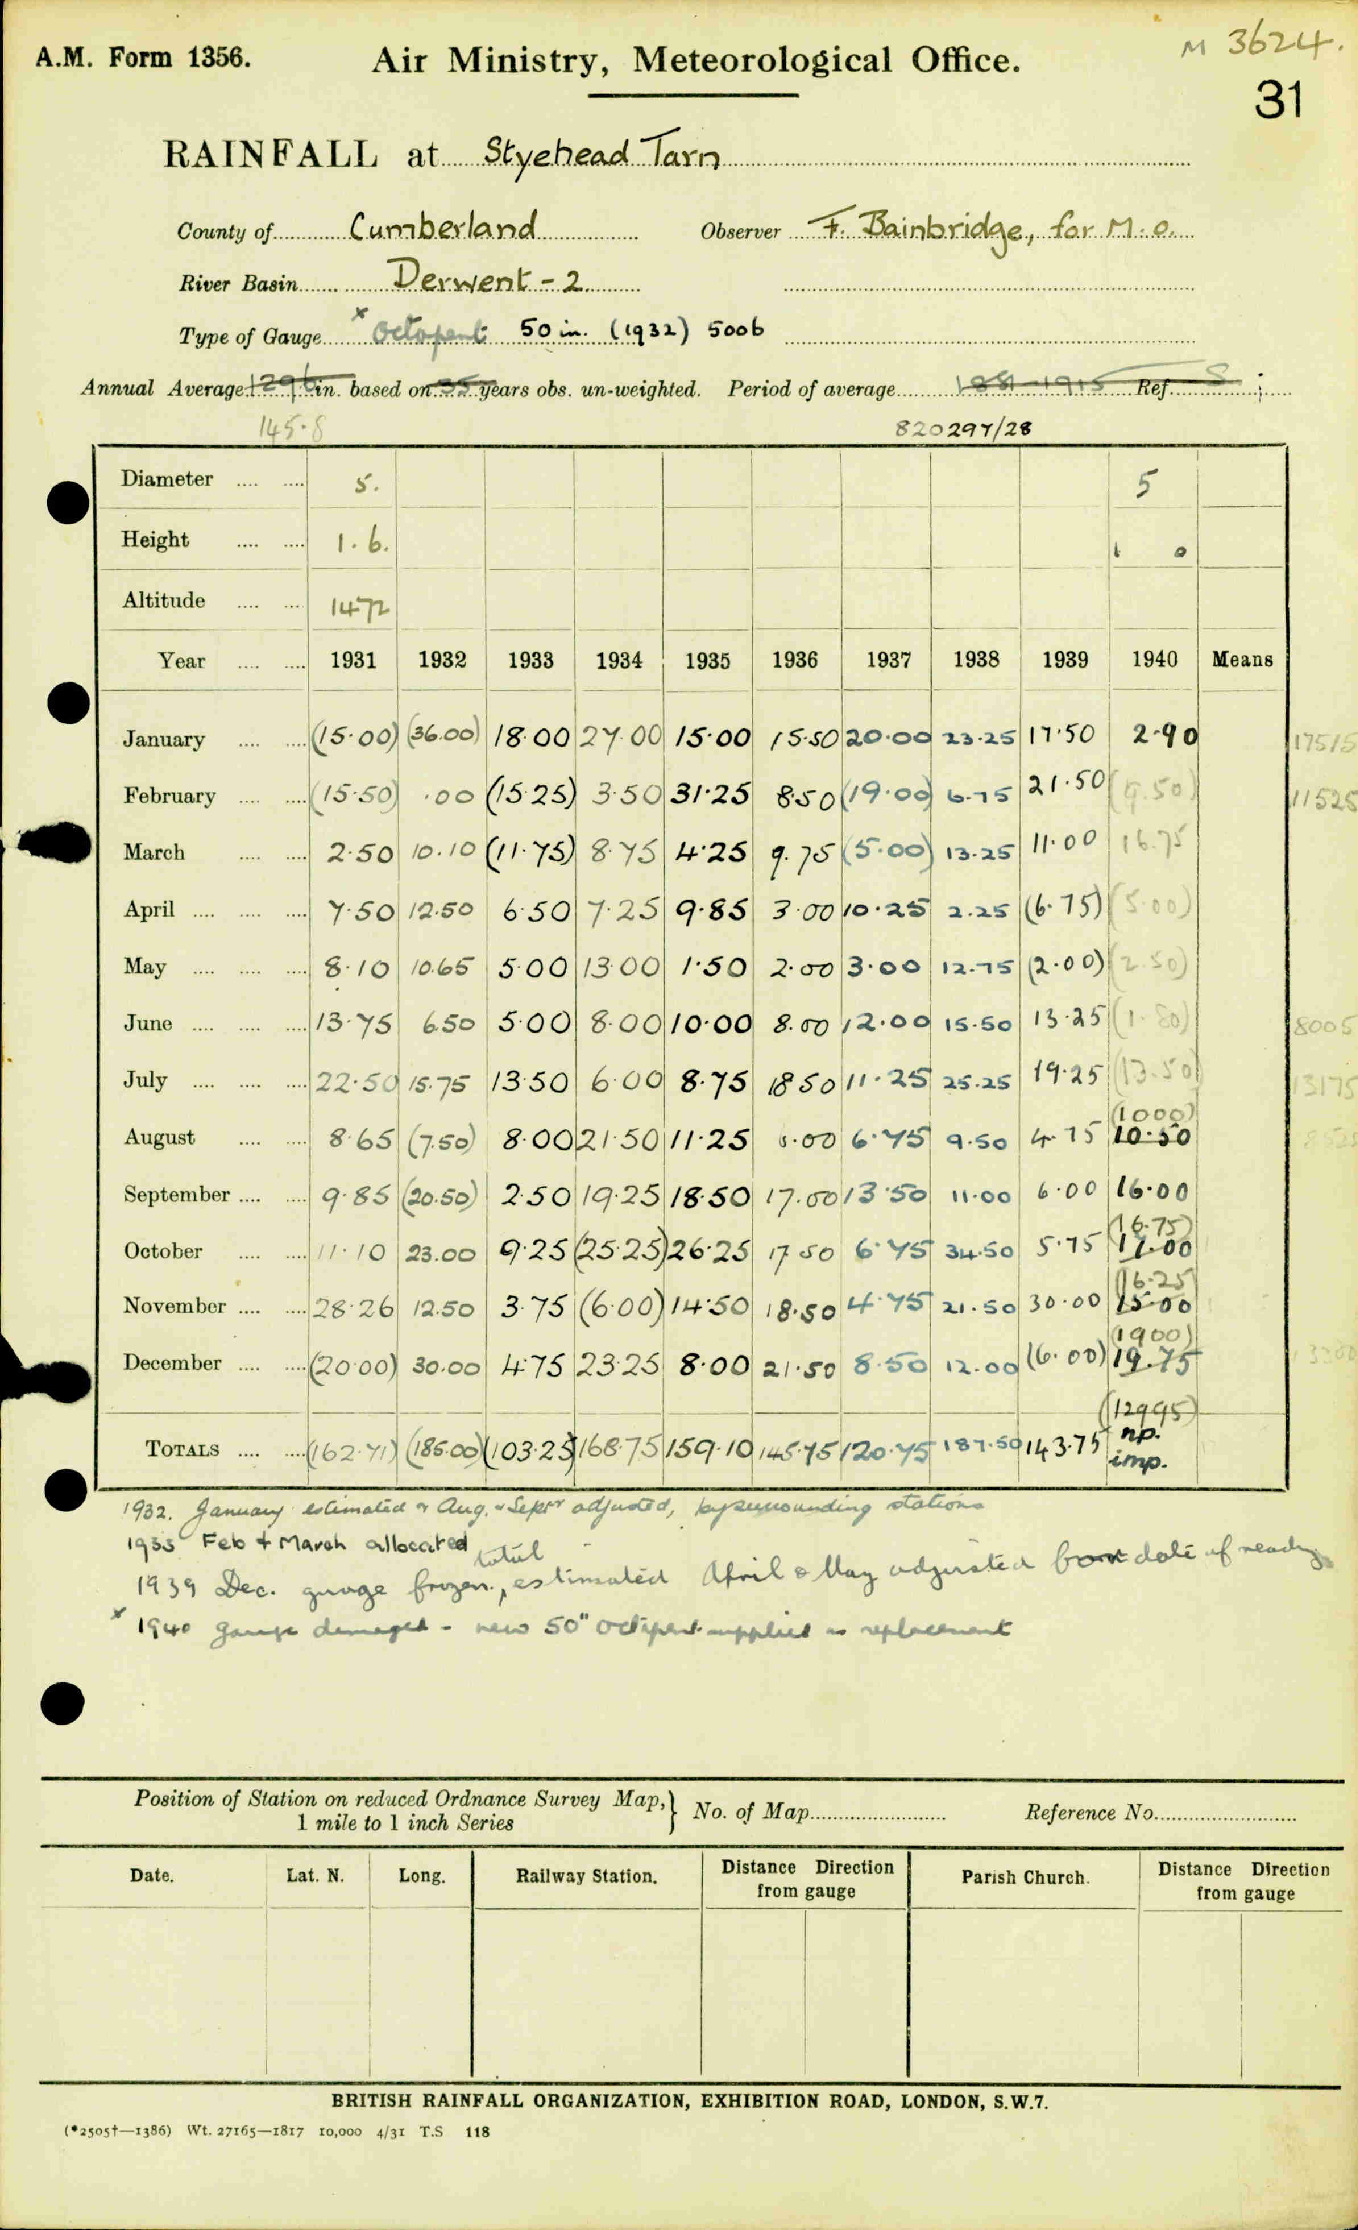 M 3624.
A.M. Form 1356. Air Ministry, Meteorological Office.
31
RAINFALL at Styehead Tarn
County of Cumberland Observer F. Bainbridge, for M.O.
River Basin Derwent - 2
Type of Gauge x Octapent 50 in. (1932) 5006
Annual Average 129.6 in. based on 35 years obs. un-weighted. Period of average 1881-1915 Ref. S
145.8 820297/28
Diameter 5. 5
Height 1. 6. 1 0
Altitude 1472
Year 1931 1932 1933 1934 1935 1936 1937 1938 1939 1940 Means
January (15.00) (36.00) 18.00 27.00 15.00 15.50 20.00 23.25 17.50 2.90 17515
February (15.50) .00 (15.25) 3.50 31.25 8.50 (19.00) 6.75 21.50 (9.50) 11525
March 2.50 10.10 (11.75) 8.75 4.25 9.75 (5.00) 13.25 11.00 16.75
April 7.50 12.50 6.50 7.25 9.85 3.00 10.25 2.25 (6.75) (5.00)
May 8.10 10.65 5.00 13.00 1.50 2.00 3.00 12.75 (2.00) (2.50)
June 13.75 6.50 5.00 8.00 10.00 8.00 12.00 15.50 13.25 (1.80) 8005
July 22.50 15.75 13.50 6.00 8.75 18.50 11.25 25.25 19.25 (13.50) 13175
(1000)
August 8.65 (7.50) 8.00 21.50 11.25 6.00 6.75 9.50 4.75 10.50
September 9.85 (20.50) 2.50 19.25 18.50 17.00 13.50 11.00 6.00 16.00
(16.75)
October 11.10 23.00 9.25 (25.25) 26.25 17.50 6.75 34.50 5.75 17.00
(16.25)
November 28.26 12.50 3.75 (6.00) 14.50 18.50 4.75 21.50 30.00 15.00
(1900)
December (20.00) 30.00 4.75 23.25 8.00 21.50 8.50 12.00 (6.00) 19.75
(12995)
TOTALS (162.71) (185.00) (103.25) 168.75 159.10 145.75 120.75 187.50 143.75 np.
imp.
1932. January estimated & Aug. & Septr adjusted, by surrounding stations
1933 Feb & March allocated
1939 Dec. guage frozen, total estimated April & May adjusted for date of reading
x 1940 gauge damaged - new 50" octapent supplied as replacement
Position of Station on reduced Ordnance Survey Map,} No. of Map Reference No.
1 mile to 1 inch Series
Date. Lat. N. Long. Railway Station. Distance Direction from gauge Parish Church. Distance Direction from gauge
BRITISH RAINFALL ORGANIZATION, EXHIBITION ROAD, LONDON, S.W.7.
(*2505†—1386) Wt. 27165—1817 10,000 4/31 T.S 118